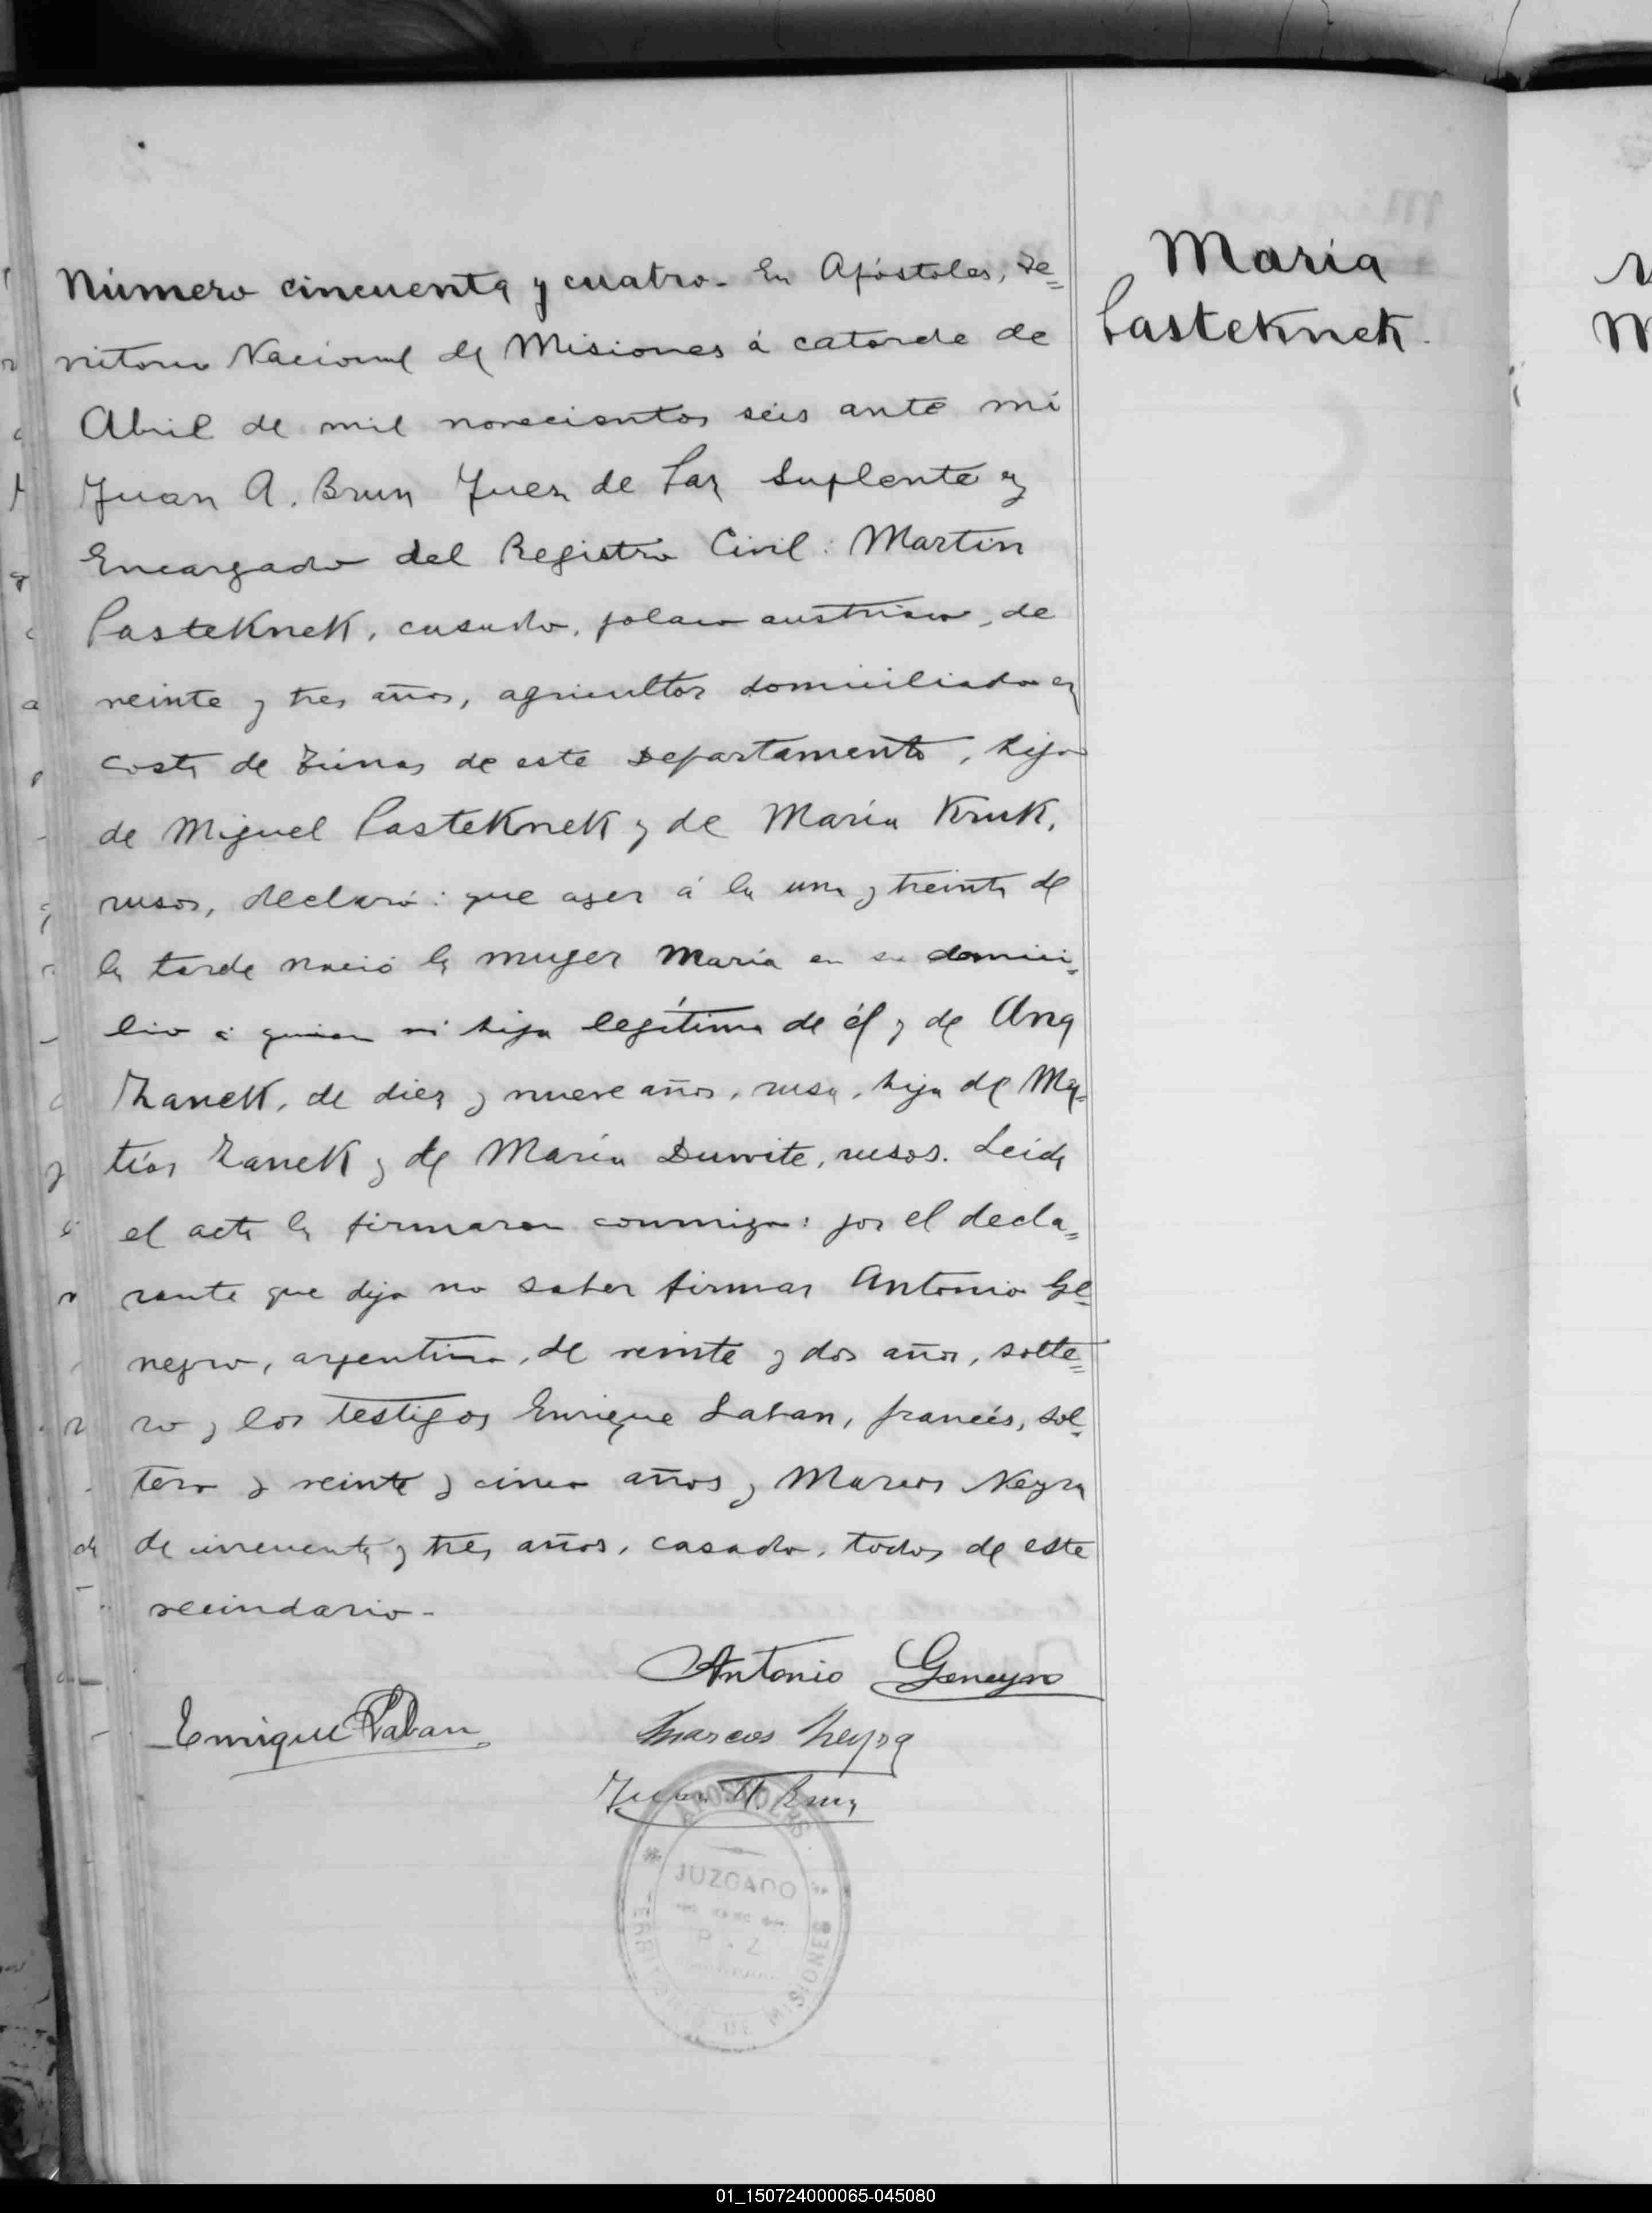 María
Pasteknek.
Número cincuenta y cuatro. En Apóstoles, Te=
rritorio Nacional de Misiones á catorce de
Abril de mil novecientos seis ante mi
Juan A. Brun Juez de Paz Suplente y
Encargado del Registro Civil: Martin
Pasteknek, casado, polaco austriaco, de
veinte y tres años, agricultor domiciliado en
costa de Tunas de este Departamento, hijo
de Miguel Pasteknek y de María Kruk,
rusos, declaró: que ayer á la una y treinta de
la tarde nació la mujer María en su domici=
lio á quien vi hija legítima de él y de Ana
Zanek, de diez y nueve años, rusa, hija de Ma=
tías Zanek y de María Duvite, rusos. Leida
el acta la firmaron conmigo: por el decla=
rante que dijo no saber firmar Antonio Ge=
neyro, argentino, de veinte y dos años, solte=
ro y los testigos Enrique Laban, francés, sol=
tero y veinte y cinco años y Marcos Neyra
de cincuenta y tres años, casado, todos de este
vecindario.-
Antonio Geneyro
Enrique Laban
Marcos Neyra
Juan A. Brun
APOSTOLES
JUZGADO
DE MISIONES
01_150724000065-045080